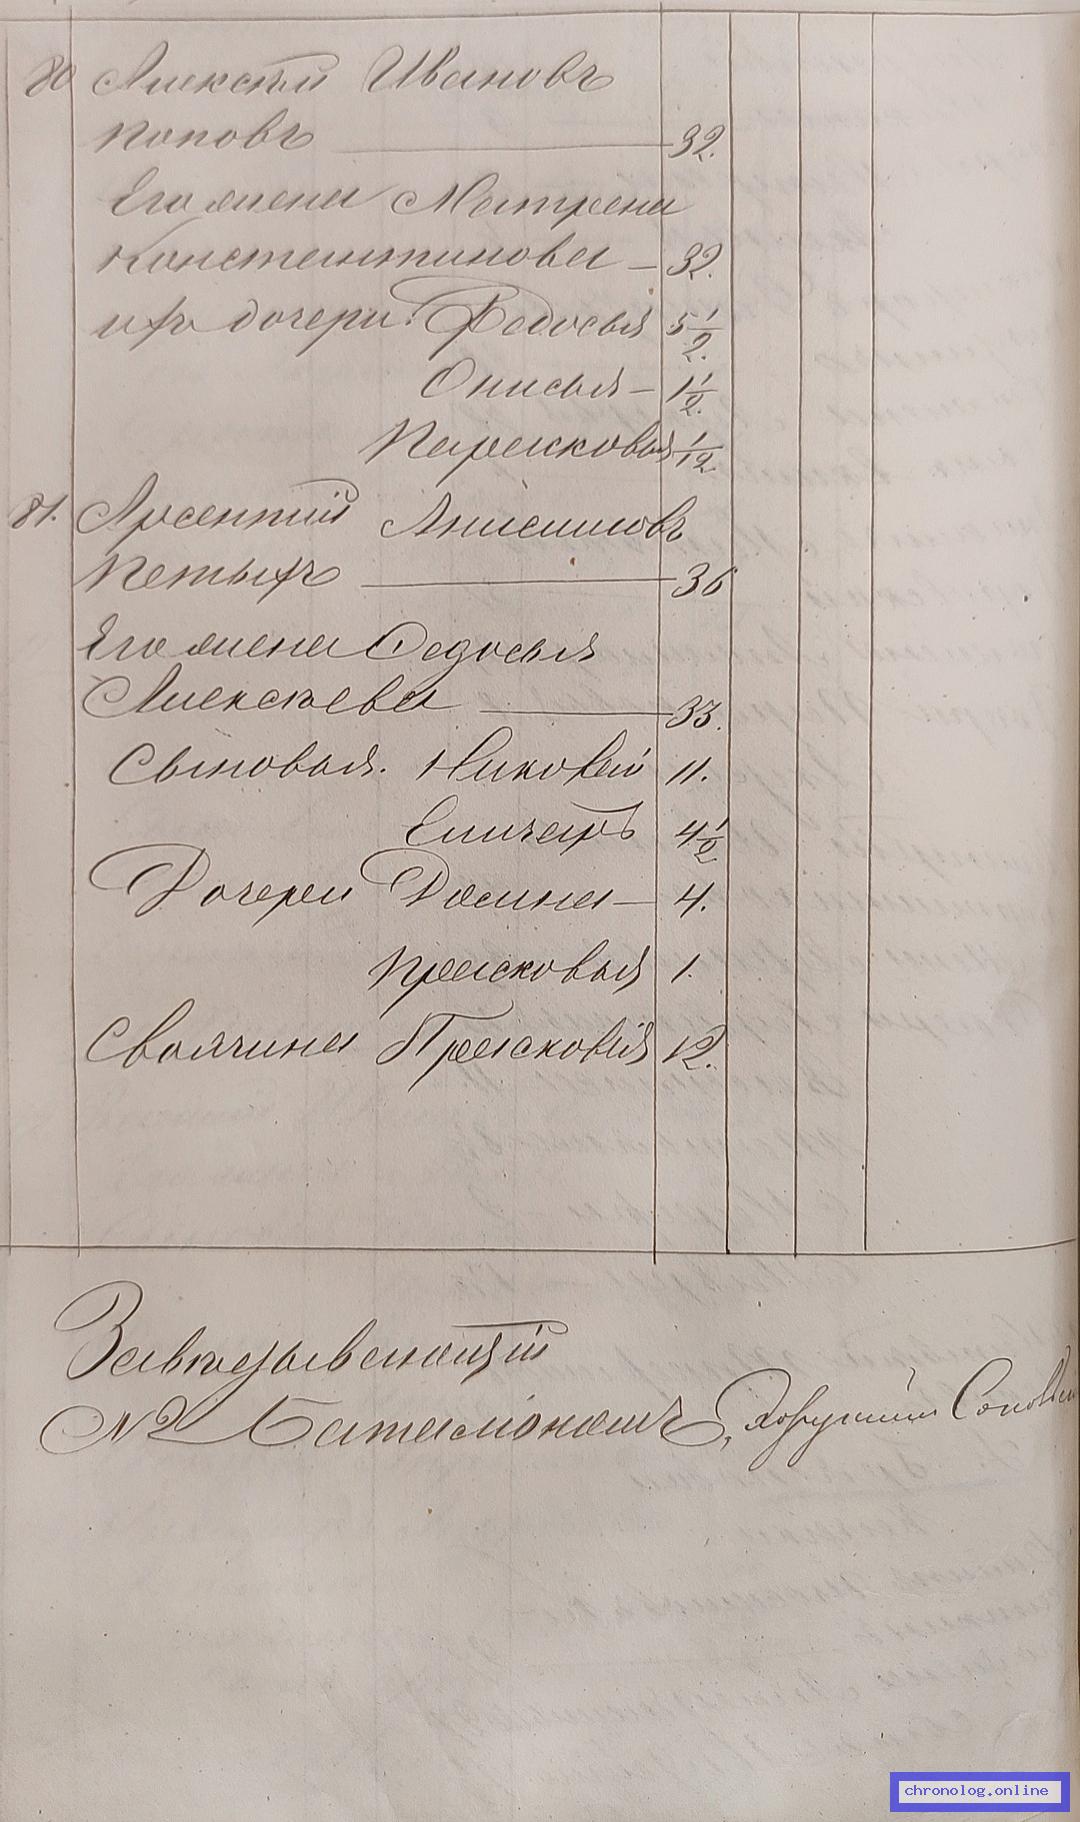 80 Алексѣй Ивановъ
Поповъ — 32.
Его жена Матрена
Константинова — 32.
ихъ дочери: Федосья 5 1/2.
Онисья — 1 1/2.
Парасковья 1/12
81. Арсентій Анисимовъ
Пятыхъ — 36
Его жена Федосья
Алексѣева — 33.
Сыновья. Николай 11.
4 1/2
Дочери Домна — 4.
Прасковья 1.
Своячина Прасковія 12.
Завѣдывающій
№ 2 Баталіономъ, Хорунжій
chronolog.online